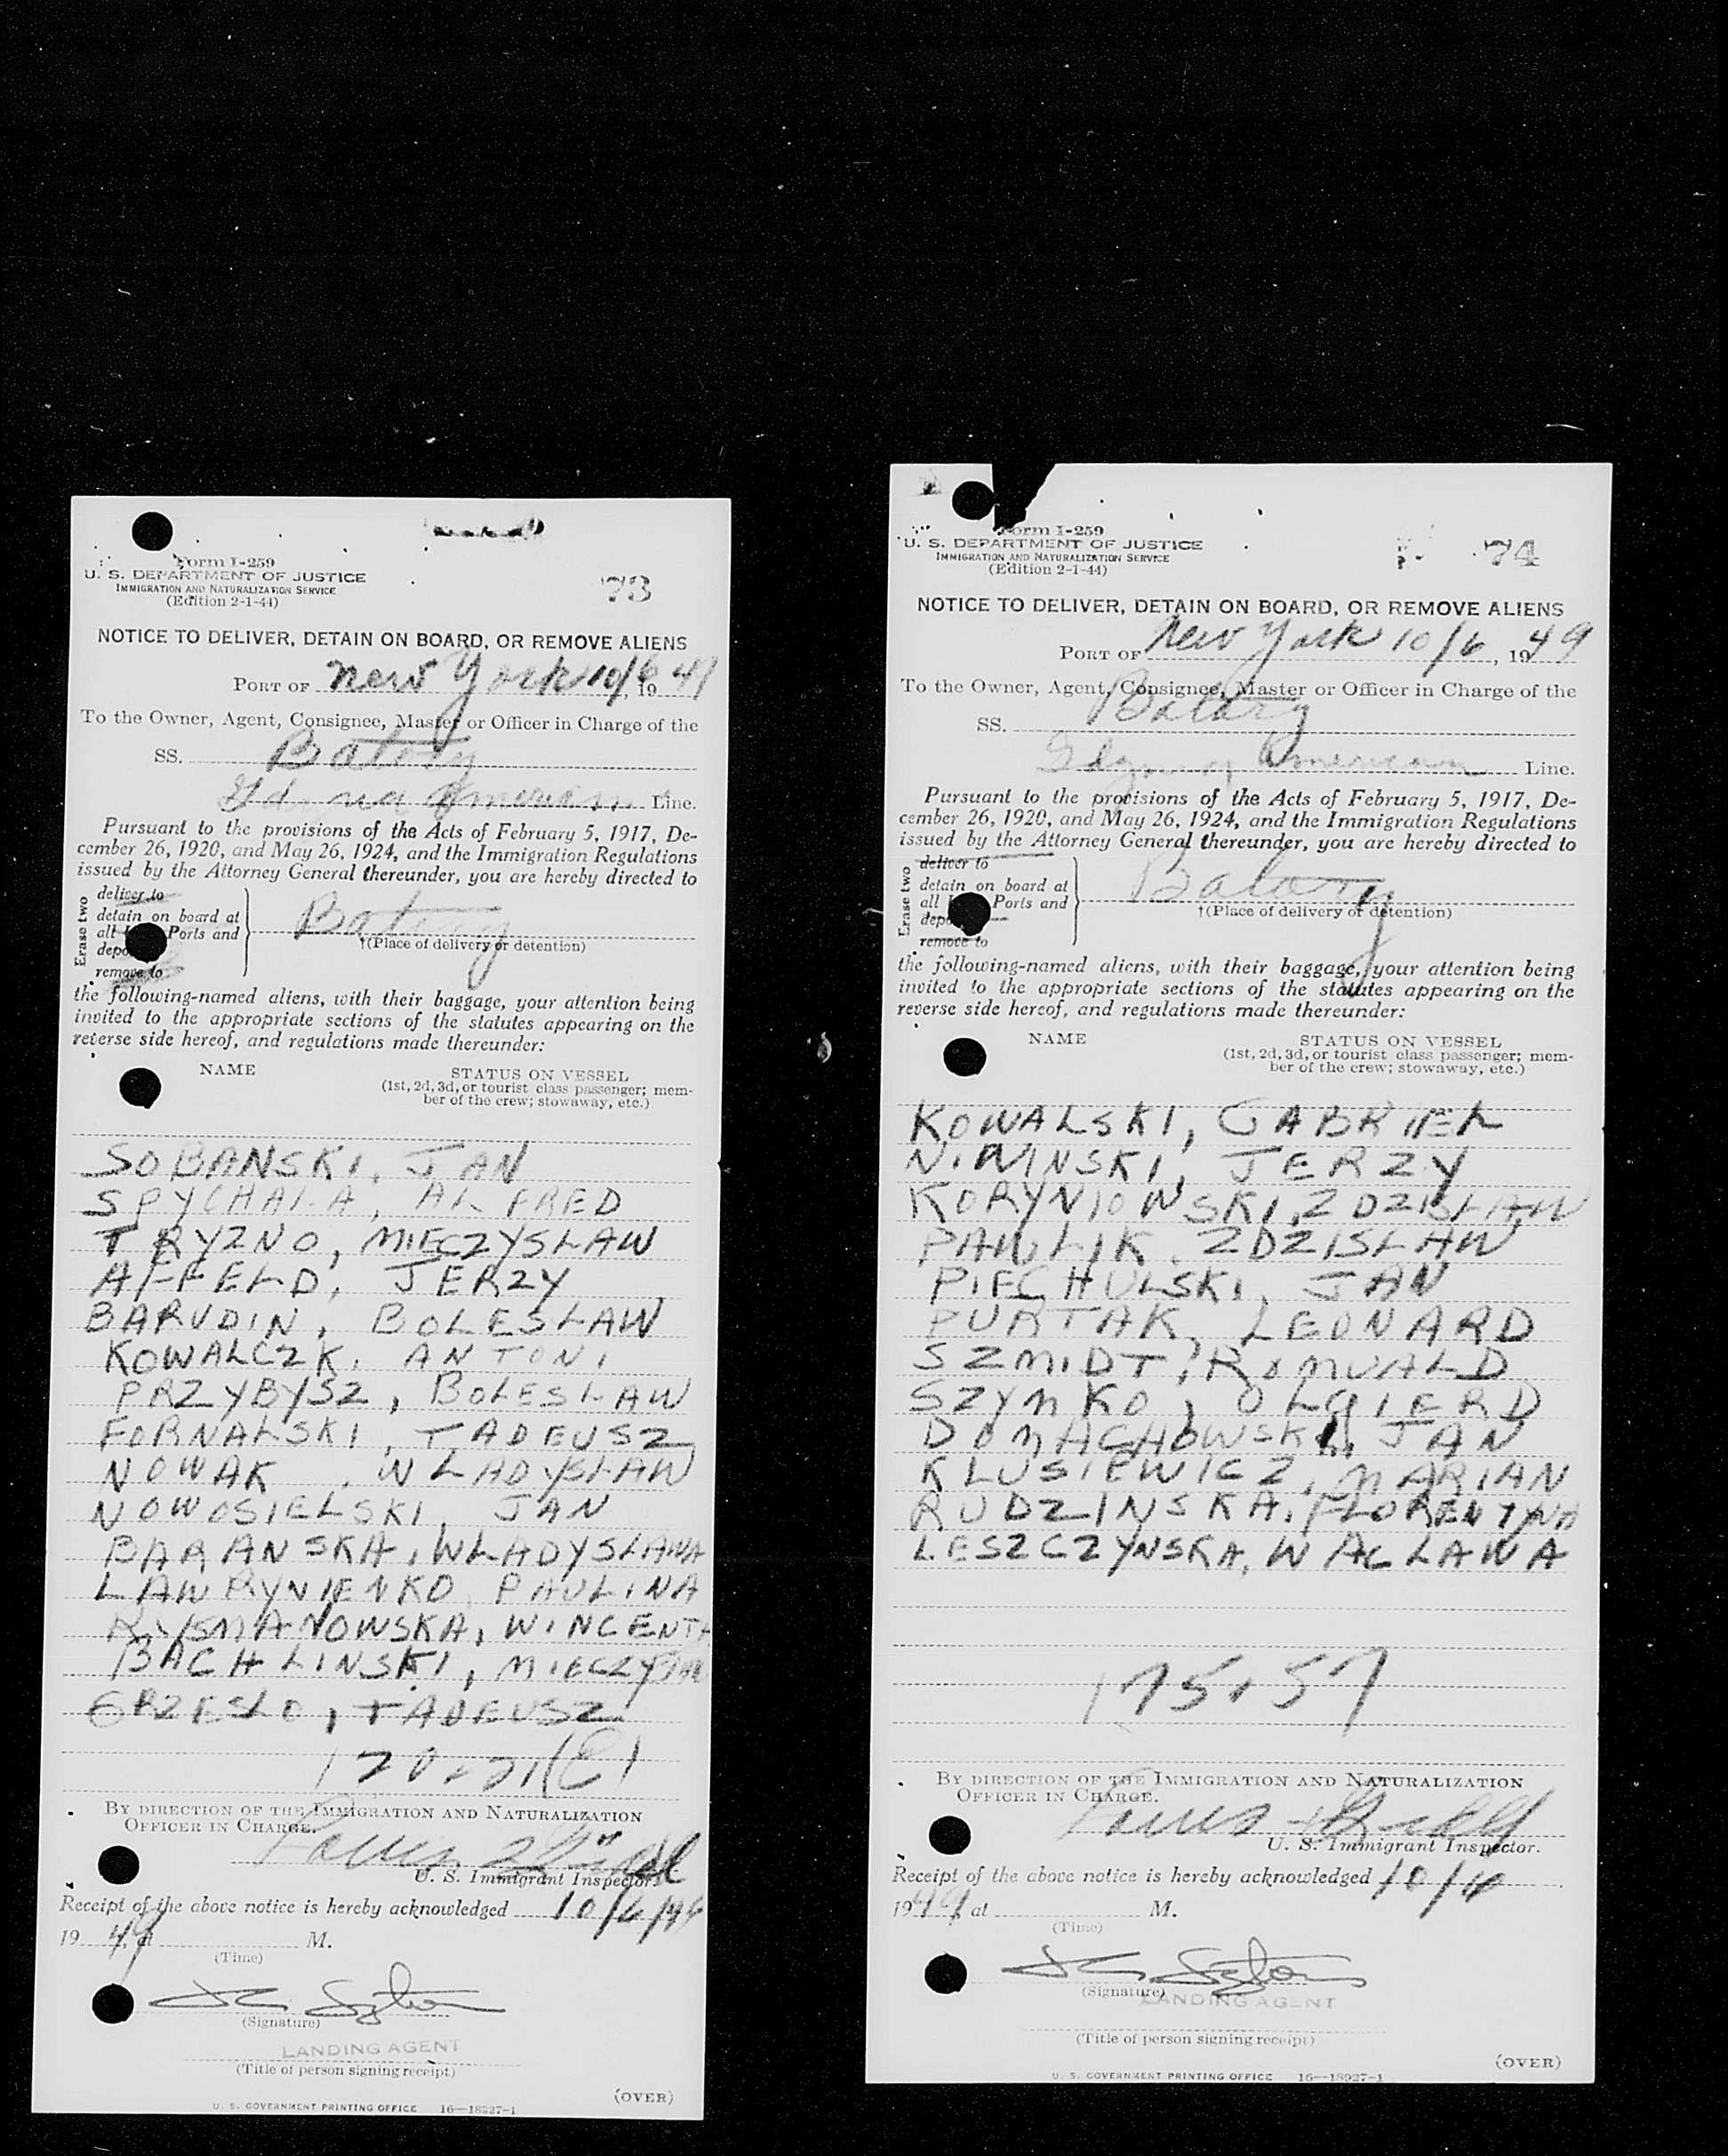 Form I-259
U. S. DEPARTMENT OF JUSTICE
IMMIGRATION AND NATURALIZATION SERVICE
(Edition 2-1-44)
73
NOTICE TO DELIVER, DETAIN ON BOARD, OR REMOVE ALIENS
PORT OF New York 10/6, 19 49
To the Owner, Agent, Consignee, Master or Officer in Charge of the
SS. Batory
Gdynia American Line.
Pursuant to the provisions of the Acts of February 5, 1917, De-
cember 26, 1920, and May 26, 1924, and the Immigration Regulations
issued by the Attorney General thereunder, you are hereby directed to
Erase two
deliver to
detain on board at
all Ports and
remove to
Batory
†(Place of delivery or detention)
the following-named aliens, with their baggage, your attention being
invited to the appropriate sections of the statutes appearing on the
reverse side hereof, and regulations made thereunder:
NAME STATUS ON VESSEL
(1st, 2d, 3d, or tourist class passenger; mem-
ber of the crew; stowaway, etc.)
SOBANSKI, JAN
SPYCHALA, ALFRED
TRYZNO, MIECZYSLAW
AFFELD, JERZY
BARUDIN, BOLESLAW
KOWALCZK, ANTONI
PRZYBYSZ, BOLESLAW
FORNALSKI, TADEUSZ
NOWAK, WLADYSLAW
NOWOSIELSKI, JAN
BARANSKA, WLADYSLAWA
LAWRYNIENKO, PAULINA
WINCENTA
BACHLINSKI,
GRZESLO, TADEUSZ
BY DIRECTION OF THE IMMIGRATION AND NATURALIZATION
OFFICER IN CHARGE.
U. S. Immigrant Inspector.
Receipt of the above notice is hereby acknowledged 10/6/
19 49, at M.
(Time)
(Signature)
LANDING AGENT
(Title of person signing receipt)
(OVER)
U. S. GOVERNMENT PRINTING OFFICE 16—18927-1
Form I-259
U. S. DEPARTMENT OF JUSTICE
IMMIGRATION AND NATURALIZATION SERVICE
(Edition 2-1-44)
74
NOTICE TO DELIVER, DETAIN ON BOARD, OR REMOVE ALIENS
PORT OF New York 10/6, 19 49
To the Owner, Agent, Consignee, Master or Officer in Charge of the
SS. Batory
Gdynia American Line.
Pursuant to the provisions of the Acts of February 5, 1917, De-
cember 26, 1920, and May 26, 1924, and the Immigration Regulations
issued by the Attorney General thereunder, you are hereby directed to
Erase two
deliver to
detain on board at
all Ports and
remove to
Batory
†(Place of delivery or detention)
the following-named aliens, with their baggage, your attention being
invited to the appropriate sections of the statutes appearing on the
reverse side hereof, and regulations made thereunder:
NAME STATUS ON VESSEL
(1st, 2d, 3d, or tourist class passenger; mem-
ber of the crew; stowaway, etc.)
KOWALSKI, GABRIEL
NIWINSKI, JERZY
KORYNIOWSKI, ZDZISLAW
PAWLIK, ZDZISLAW
PIECHULSKI, JAN
PURTAK, LEONARD
SZMIDT, ROMUALD
SZYMKO, OLGIERD
DOMACHOWSKI, JAN
KLUSIEWICZ, MARIAN
RUDZINSKA, FLORENTYNA
LESZCZYNSKA, WACLAWA
175.57
BY DIRECTION OF THE IMMIGRATION AND NATURALIZATION
OFFICER IN CHARGE.
U. S. Immigrant Inspector.
Receipt of the above notice is hereby acknowledged 10/6
1949, at M.
(Time)
(Signature)
LANDING AGENT
(Title of person signing receipt)
(OVER)
U. S. GOVERNMENT PRINTING OFFICE 16—18927-1